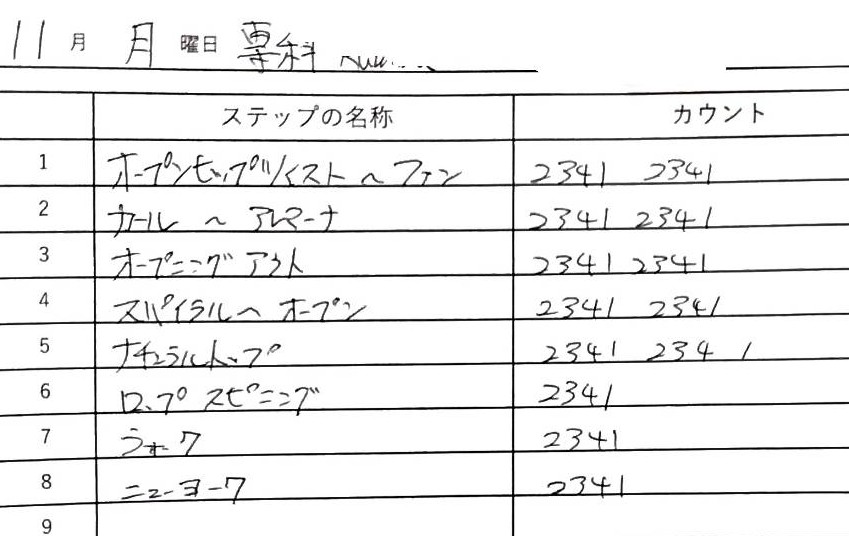 11月 月曜日 専科
ステップの名称 カウント
1 オープンヒップツイスト～ファン 2341 2341
2 カール ～ アレマーナ 2341 2341
3 オープニングアウト 2341 2341
4 スパイラル～オープン 2341 2341
5 ナチュラルトップ 2341 2341
6 ロップスピニング 2341
7 ウォーク 2341
8 ニューヨーク 2341
9